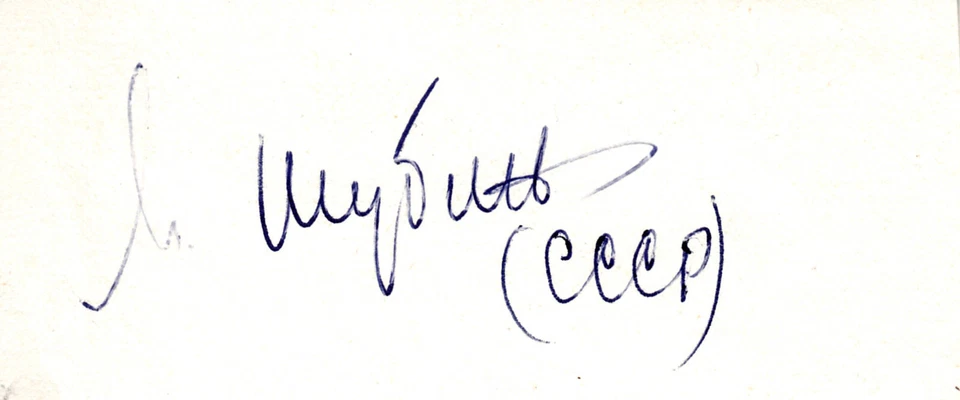 Шубинъ
(СССР)